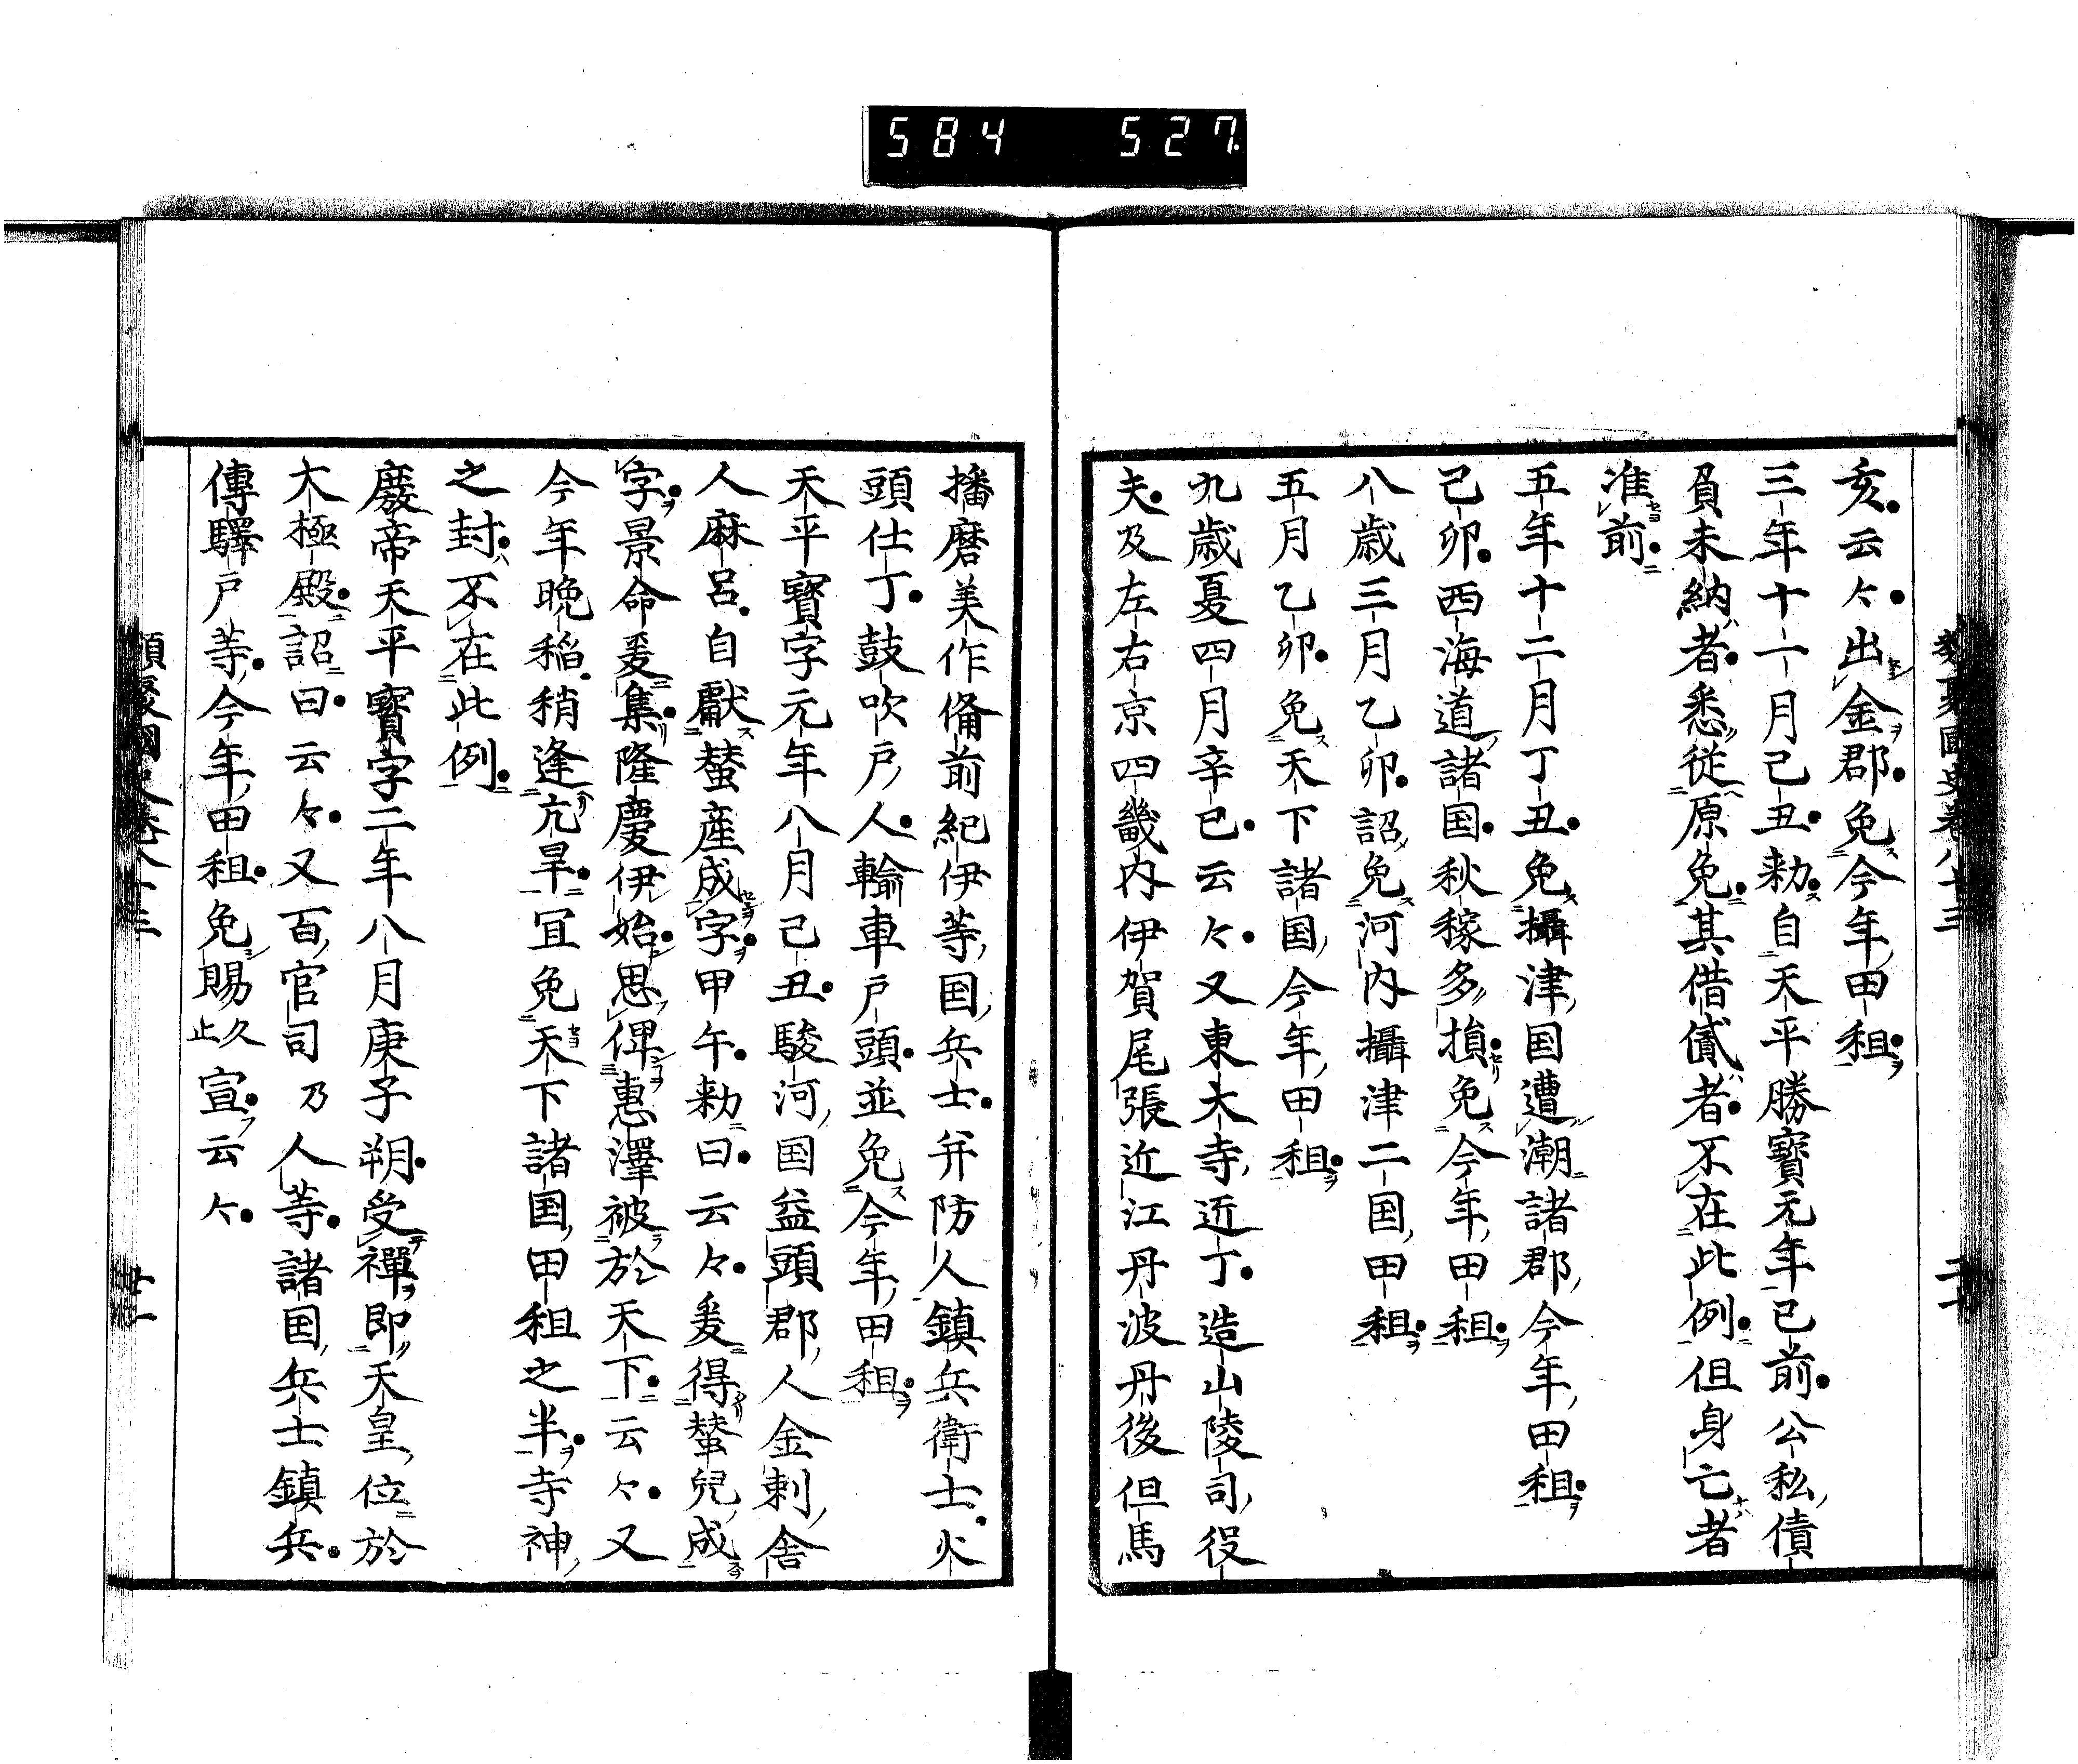 584 527
亥云々出金郡免今年田租
三年十一月己丑勅自天平勝寳元年已前公私債
負未納者悉従原免其借貸者不在此例但身亡者
准前
五年十二月丁丑免攝津国遭潮諸郡今年田租
己卯西海道諸国秋稼多損免今年田租
八歳三月乙卯詔免河内攝津二国田租
五月乙卯免天下諸国今年田租
九歳夏四月辛巳云々又東大寺近丁造山陵司役
夫及左右京四畿内伊賀尾張近江丹波丹後但馬
播磨美作俻前紀伊等国兵士并防人鎮兵衛士火
頭仕丁鼓吹戸人輸車戸頭並免今年田租
天平寳字元年八月己丑駿河国益頭郡人金刺舎
人麻呂自獻蠶産成字甲午勅曰云々爰得蠶兒成
字景命爰集隆慶伊始思俾惠澤被於天下云々又
今年晩稲稍逢亢旱冝免天下諸国田租之半寺神
之封不在此例
廢帝天平寳字二年八月庚子朔受禪即天皇位於
大極殿詔曰云々又百官司乃人等諸国兵士鎮兵
傳驛戸等今年田租免賜久止宣云々
類聚國史卷八十三 廿一